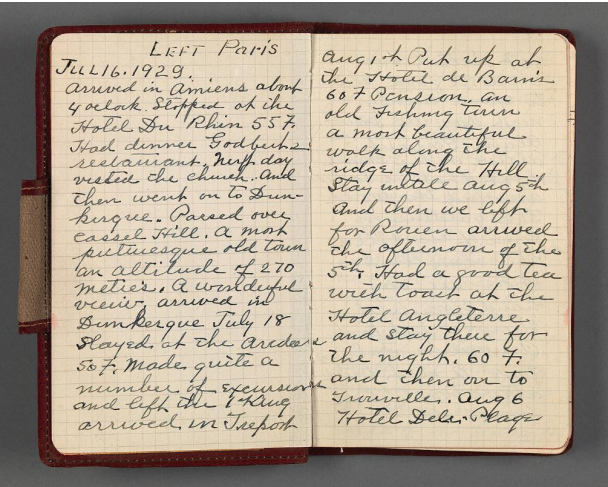 LEFT Paris
JUL 16. 1929.
arrived in Amiens about
4 oclock Stopped at the
Hotel Du Rhin 55 F.
Had dinner Godberts
restaurant. Next day
visted the church. And
then went on to Dun-
kerque. Passed over
Cassel Hill. A most
picturesque old town
an altitude of 270
meties. A wonderful
view arrived in
Dunkerque July 18
Stayed at the
50 F. Made quite a
number of excursions
and left the 1st Aug
arrived in Treport
Aug 1st Put up at
the Hotel de Bains
60 F Pension. an
old Fishing town
a most beautiful
walk along the
ridge of the Hill
Stay untile Aug 5th
And then we left
for Rouen arrived
the afternoon of the
5th. Had a good tea
with toast at the
Hotel Angleterre
and stay there for
the night. 60 F.
and then on to
Trouville. Aug 6
Hotel Plage